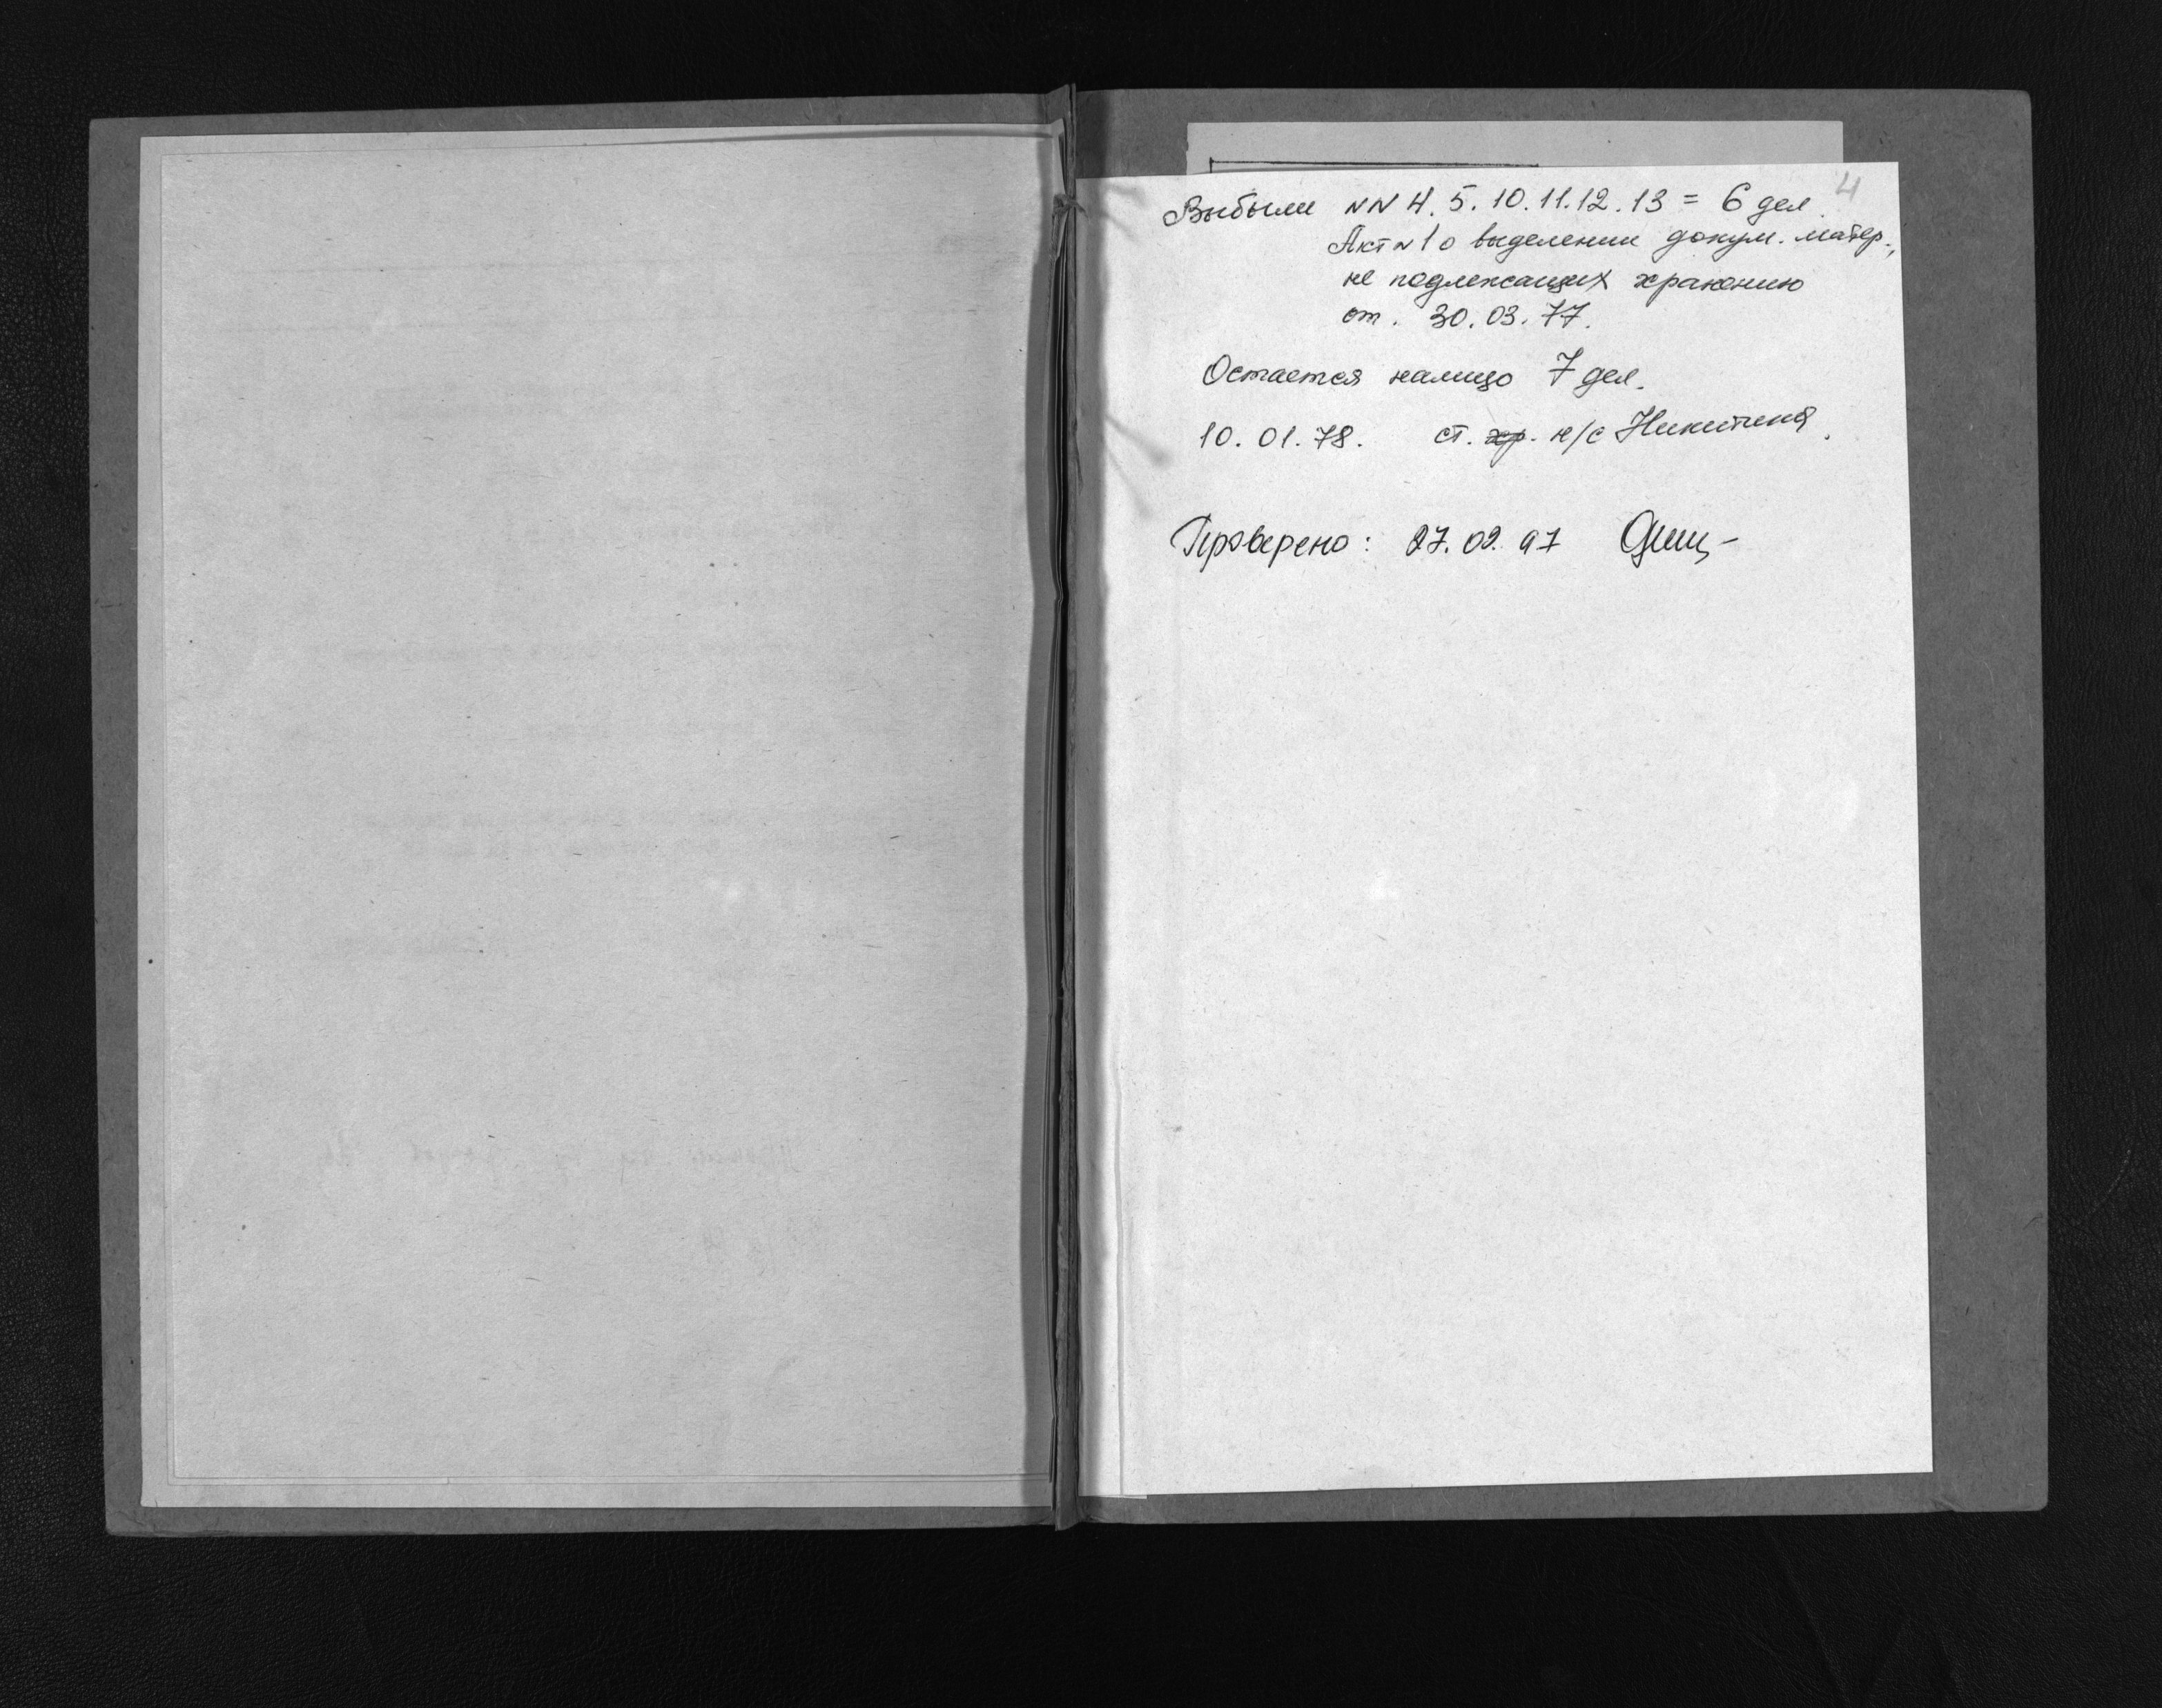 4
Выбыли NN 4. 5. 10. 11. 12. 13 = 6 дел.
Акт N 1 о выделении докум. матер.,
не подлежащих хранению
от. 30. 03. 77.
Остается налицо 7 дел.
10. 01. 78. ст. хр. н/с Никитина.
Проверено: 27. 02. 97